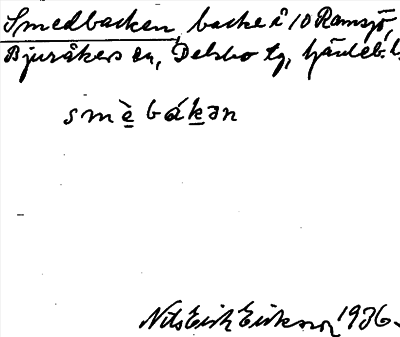 Smedbacken, backe i 10 Ramsjö,
Bjuråkers sn, Delsbo tg, Gävleb. l.
smè̱ báḵən
Nils Erik Eriksson 1936.